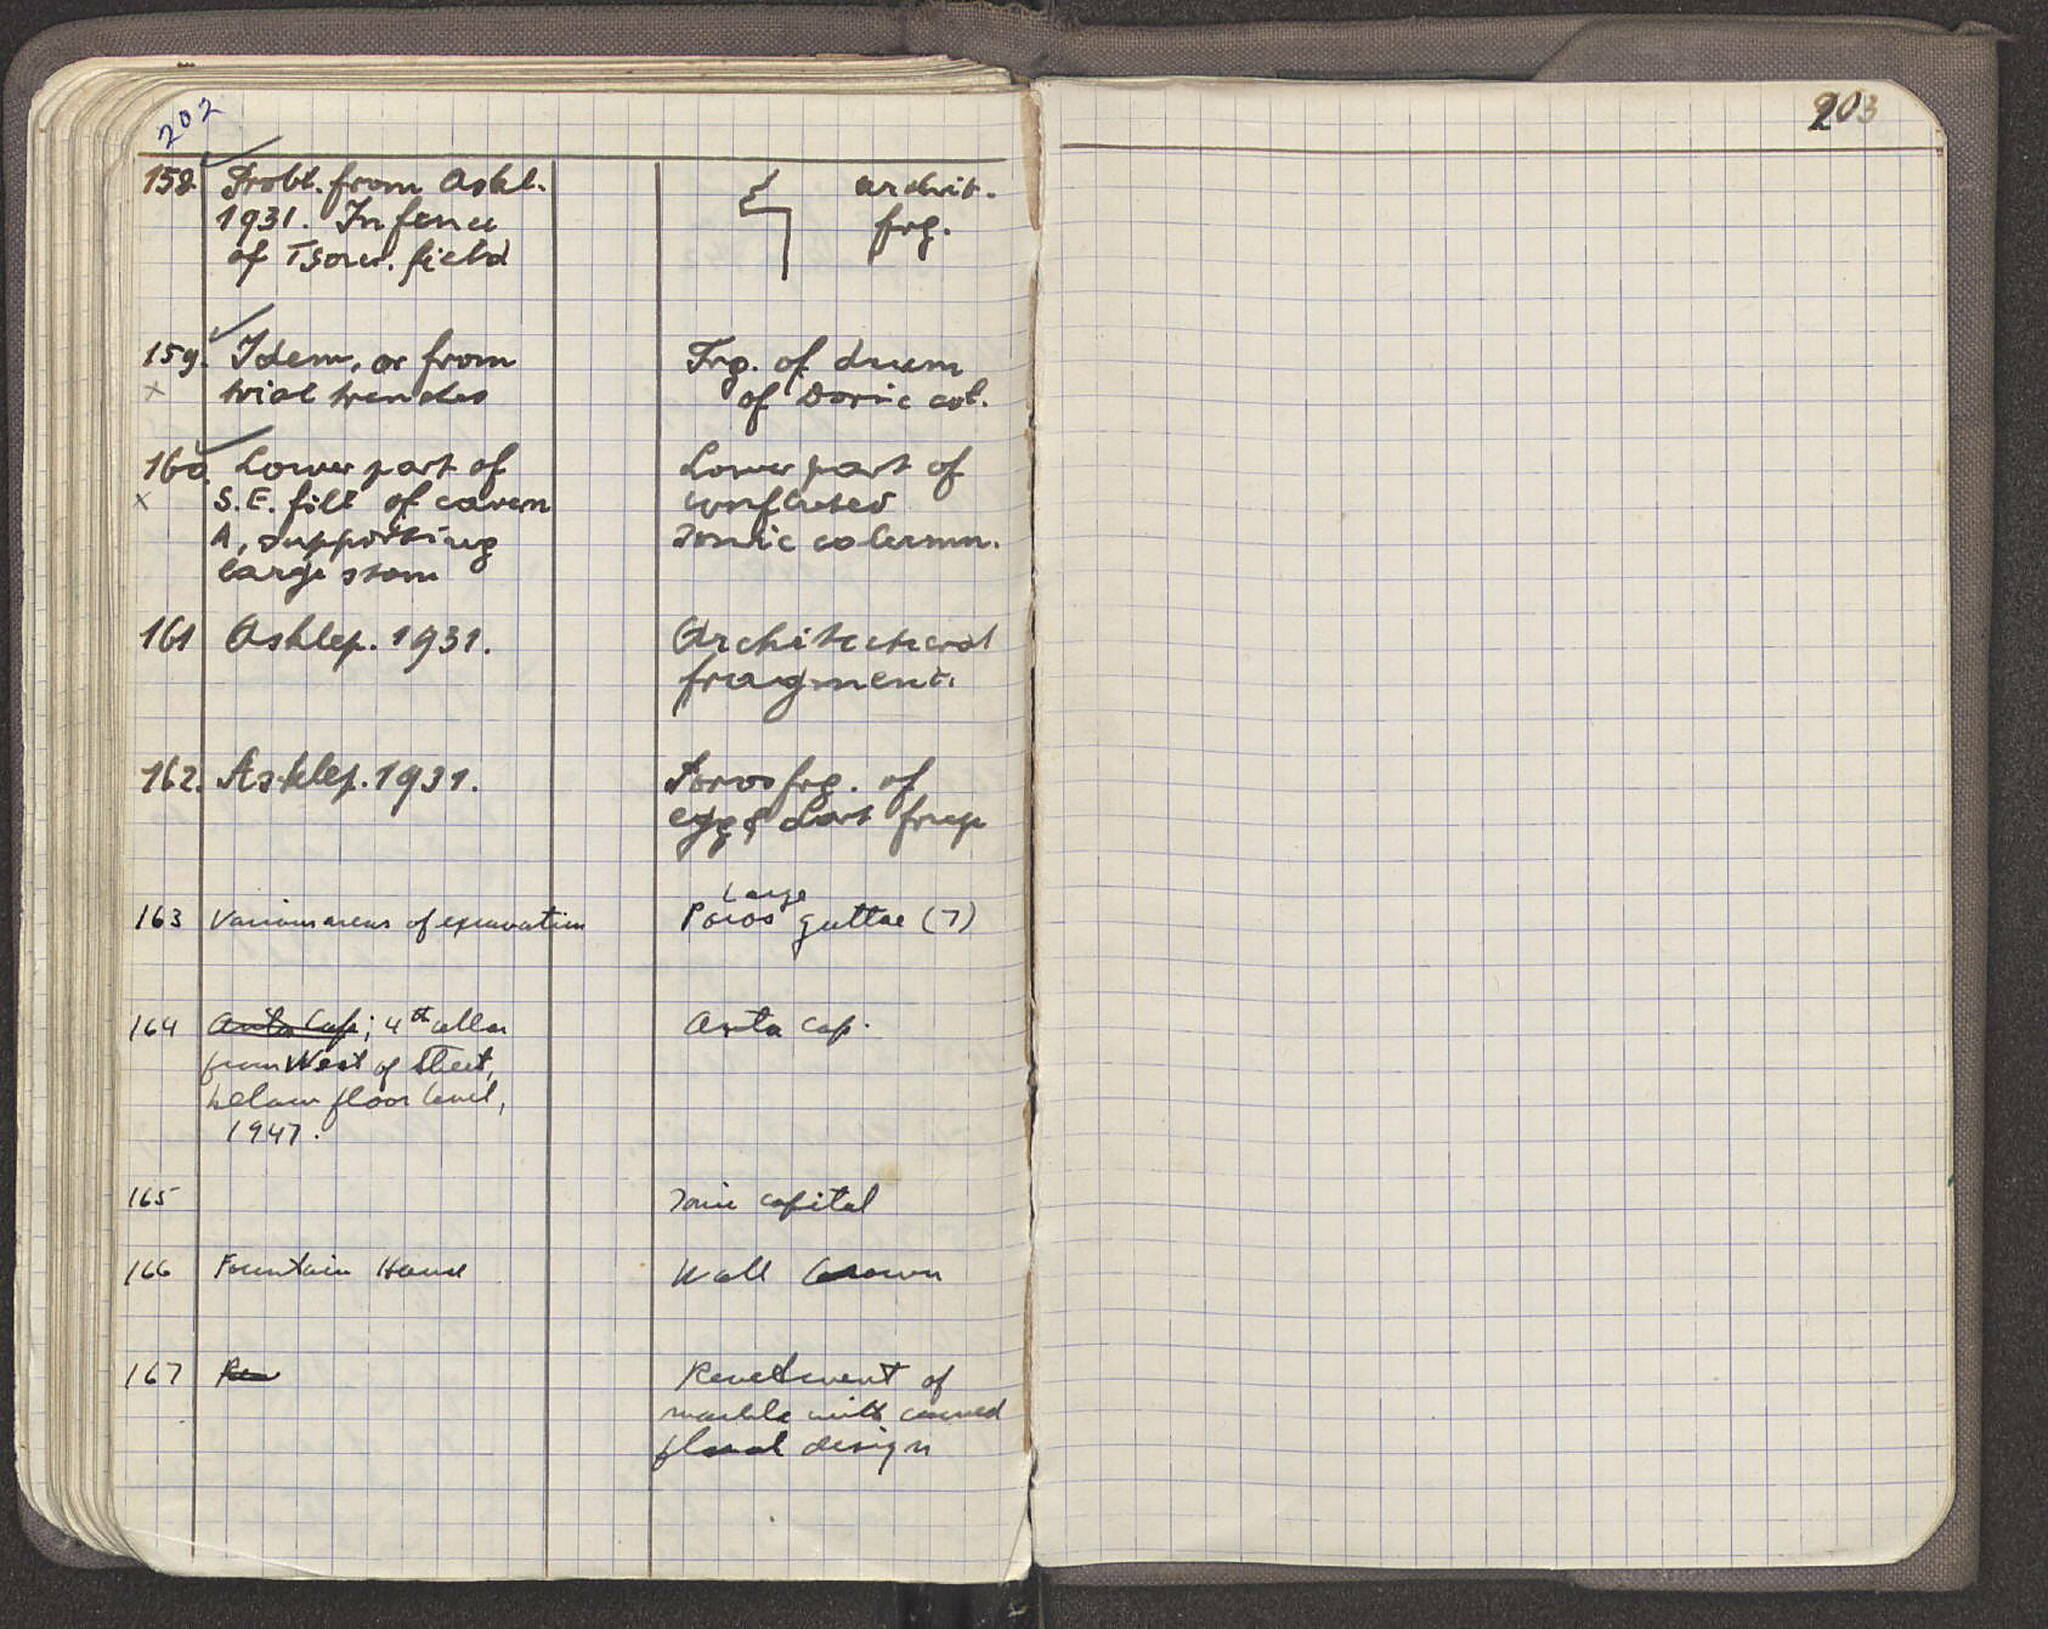 202
203
158. Probl. from Askl.
1931. In fence
of Tsour. field
archit.
frg.
159. Idem, or from
trial trenches
Frg. of drum
of Doric col.
160. Lower part of
S.E. fill of cavern
A, supporting
large stone
Lower part of
unfluted
Ionic column.
161 Asklep. 1931.
Architectural
fragment.
162. Asklep. 1931.
Poros frg. of
egg & dart
163 Various areas of excavation
Large
Poros guttae (7)
164 Anta Cap; 4th cellar
from West of Street,
below floor level,
1947.
Anta cap.
165
Ionic capital
166 Fountain House
Wall Crown
167 Rev
Revetment of
marble with carved
floral design